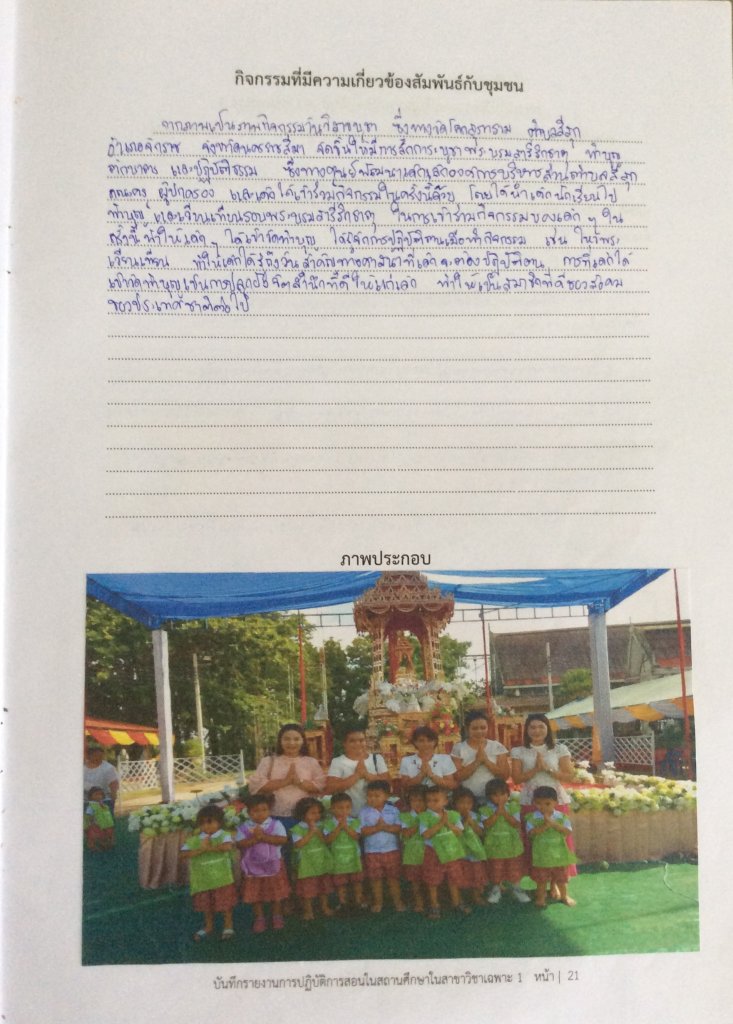 กิจกรรมที่มีความเกี่ยวข้องสัมพันธ์กับชุมชน
จากภาพเป็นภาพกิจกรรมวันวิสาขบูชา ซึ่งทางวัดโคกสุภาราม ตำบลสีสุก
อำเภอจักราช จังหวัดนครราชสีมา จัดขึ้นให้มีการสักการะบูชาพระบรมสารีริกธาตุ ทำบุญ
ตักบาตร และปฏิบัติธรรม ซึ่งทางศูนย์พัฒนาเด็กเล็กองค์การบริหารส่วนตำบลสีสุก
คณะครู ผู้ปกครอง และเด็กได้เข้าร่วมกิจกรรมในครั้งนี้ด้วย โดยได้นำเด็กนักเรียนไป
ทำบุญ และเวียนเทียนรอบพระบรมสารีริกธาตุ ในการเข้าร่วมกิจกรรมของเด็ก ๆ ใน
ครั้งนี้ ทำให้เด็กๆ ได้เข้าวัดทำบุญ ได้รู้จักการปฏิบัติตนเมื่อทำกิจกรรม เช่น ไหว้พระ
เวียนเทียน ทำให้เด็กได้รู้ถึงวันสำคัญทางศาสนาที่เด็กจะต้องปฏิบัติตน การที่เด็กได้
เข้าวัดทำบุญเป็นการปลูกฝังจิตสำนึกที่ดีให้แก่เด็ก ทำให้เป็นสมาชิกที่ดีของสังคม
ของประเทศชาติต่อไป
ภาพประกอบ
บันทึกรายงานการปฏิบัติการสอนในสถานศึกษาในสาขาวิชาเฉพาะ 1 หน้า | 21